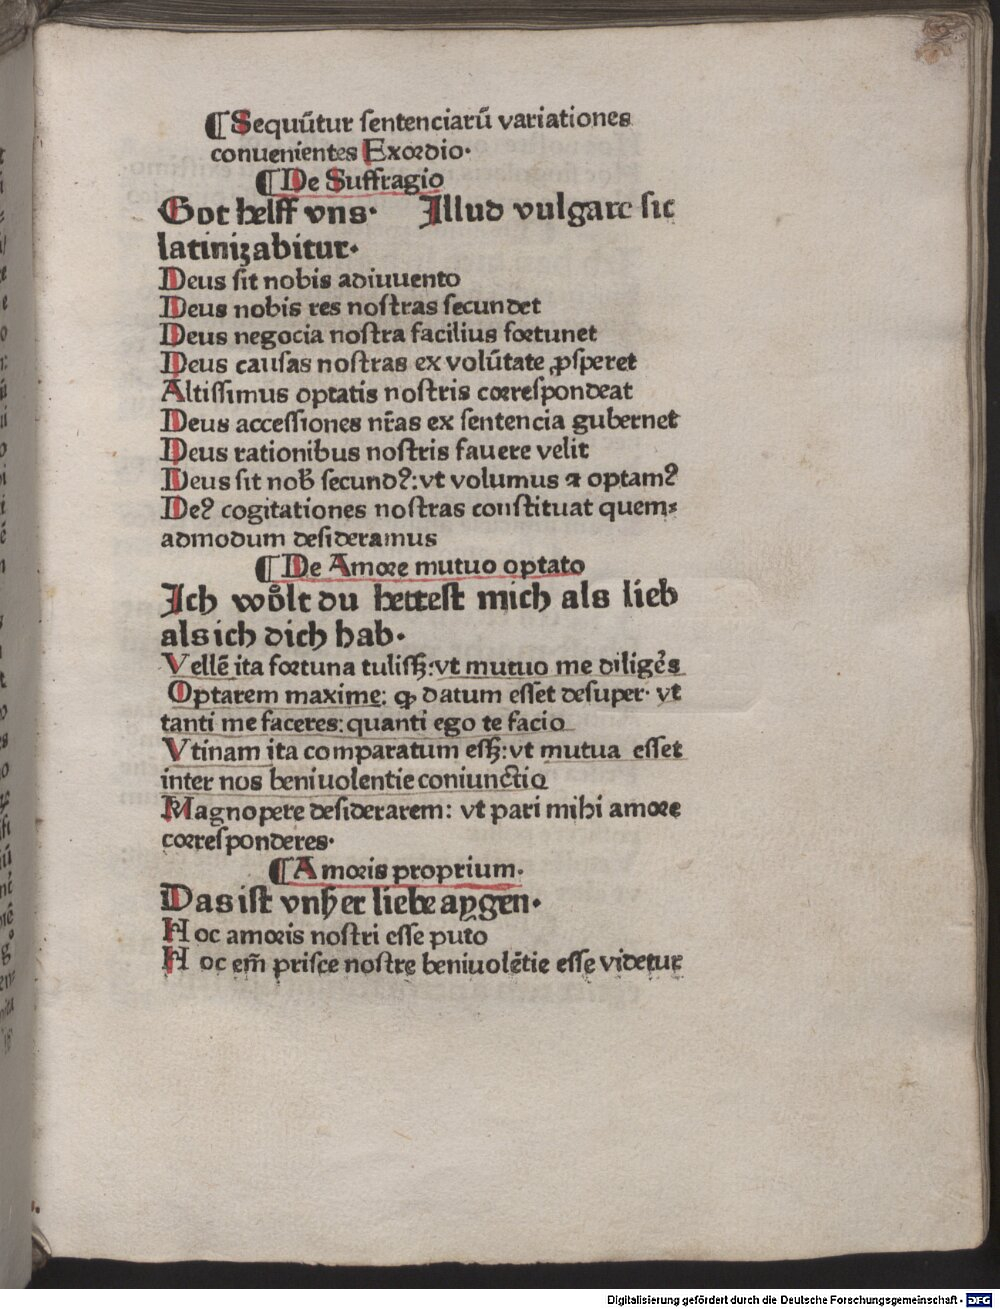 ¶ Sequūtur ſentenciarū variationes
conuenientes Exordio·
¶ De Suffragio
Got helff vns· Illud vulgare ſic
latiniʒabitur·
Deus ſit nobis adiuuento
Deus nobis res noſtras ſecundet
Deus negocia noſtra facilius fortunet
Deus cauſas noſtras ex volūtate ꝓſperet
Altiſſimus optatis noſtris correſpondeat
Deus acceſſiones nr̄as ex ſentencia gubernet
Deus rationibus noſtris fauere velit
Deus ſit nob̄ ſecundꝰ: vt volumus ⁊ optamꝰ
Deꝰ cogitationes noſtras conſtituat quem⸗
admodum deſideramus
¶ De Amore mutuo optato
Ich woͤlt du betteſt mich als lieb
als ich dich hab·
Vellē ita fortuna tuliſſꝫ: vt mutuo me diligēs
Optarem maxime: ꝙ datum eſſet deſuper· vt
tanti me faceres: quanti ego te facio
Vtinam ita comparatum eſſꝫ: vt mutua eſſet
inter nos beniuolentie coniunctio
Magnopere deſiderarem: vt pari mihi amore
correſponderes·
¶ Amoris proprium·
Das iſt vnſʒer liebe aygen·
Hoc amoris noſtri eſſe puto
Hoc em̄ priſce noſtre beniuolētie eſſe videtur
Digitalisierung gefördert durch die Deutsche Forschungsgemeinschaft - DFG